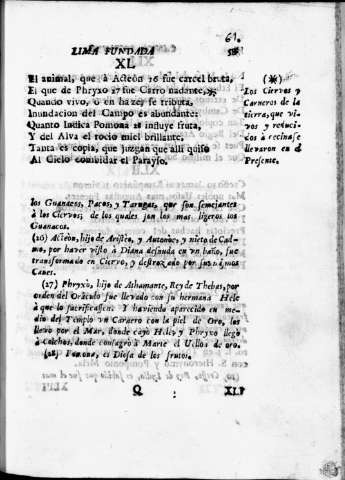 61.
LIMA FUNDADA
XL
El animal, que à Acteòn 26 fue carcel bruta,
El que de Phryxo 27 fue Carro nadante,
Quando vivo, ò en hazes se tributa,
Inundacion del Campo es abundante:
Quanto Indica Pomona 28 influye fruta,
Y del Alva el rocio miel brillante,
Tanta es copia, que juzgan que allì quiso
Al Cielo combidar el Parayso.
(*)
Los Ciervos y
Carneros de la
tierra, que vi-
vos y reduci-
dos à
llevaron en el
Presente.
los Guanacos, Pacos, y Tarugas, que son semejantes
à los Ciervos; de los quales son los mas ligeros los
Guanacos.
(26) Acteòn, hijo de Aristèo, y Autonoe, y nieto de Cad-
mo, por haver visto à Diana desnuda en un baño, fue
transformado en Ciervo, y destrozado por sus mismos
Canes.
(27) Phryxo, hijo de Athamante, Rey de Thebas, por
orden del Oraculo fue llevado con su hermana Hele
à que lo sacrificassen: Y haviendo aparecido en me-
dio del Templo un Cararro con la piel de Oro, los
llevò por el Mar, donde cayò Hele; y Phryxo llegò
à Colchos, donde consagrò à Marte el Vellos de oro.
(28) Pomona, es Diosa de los frutos.
Q
XLI